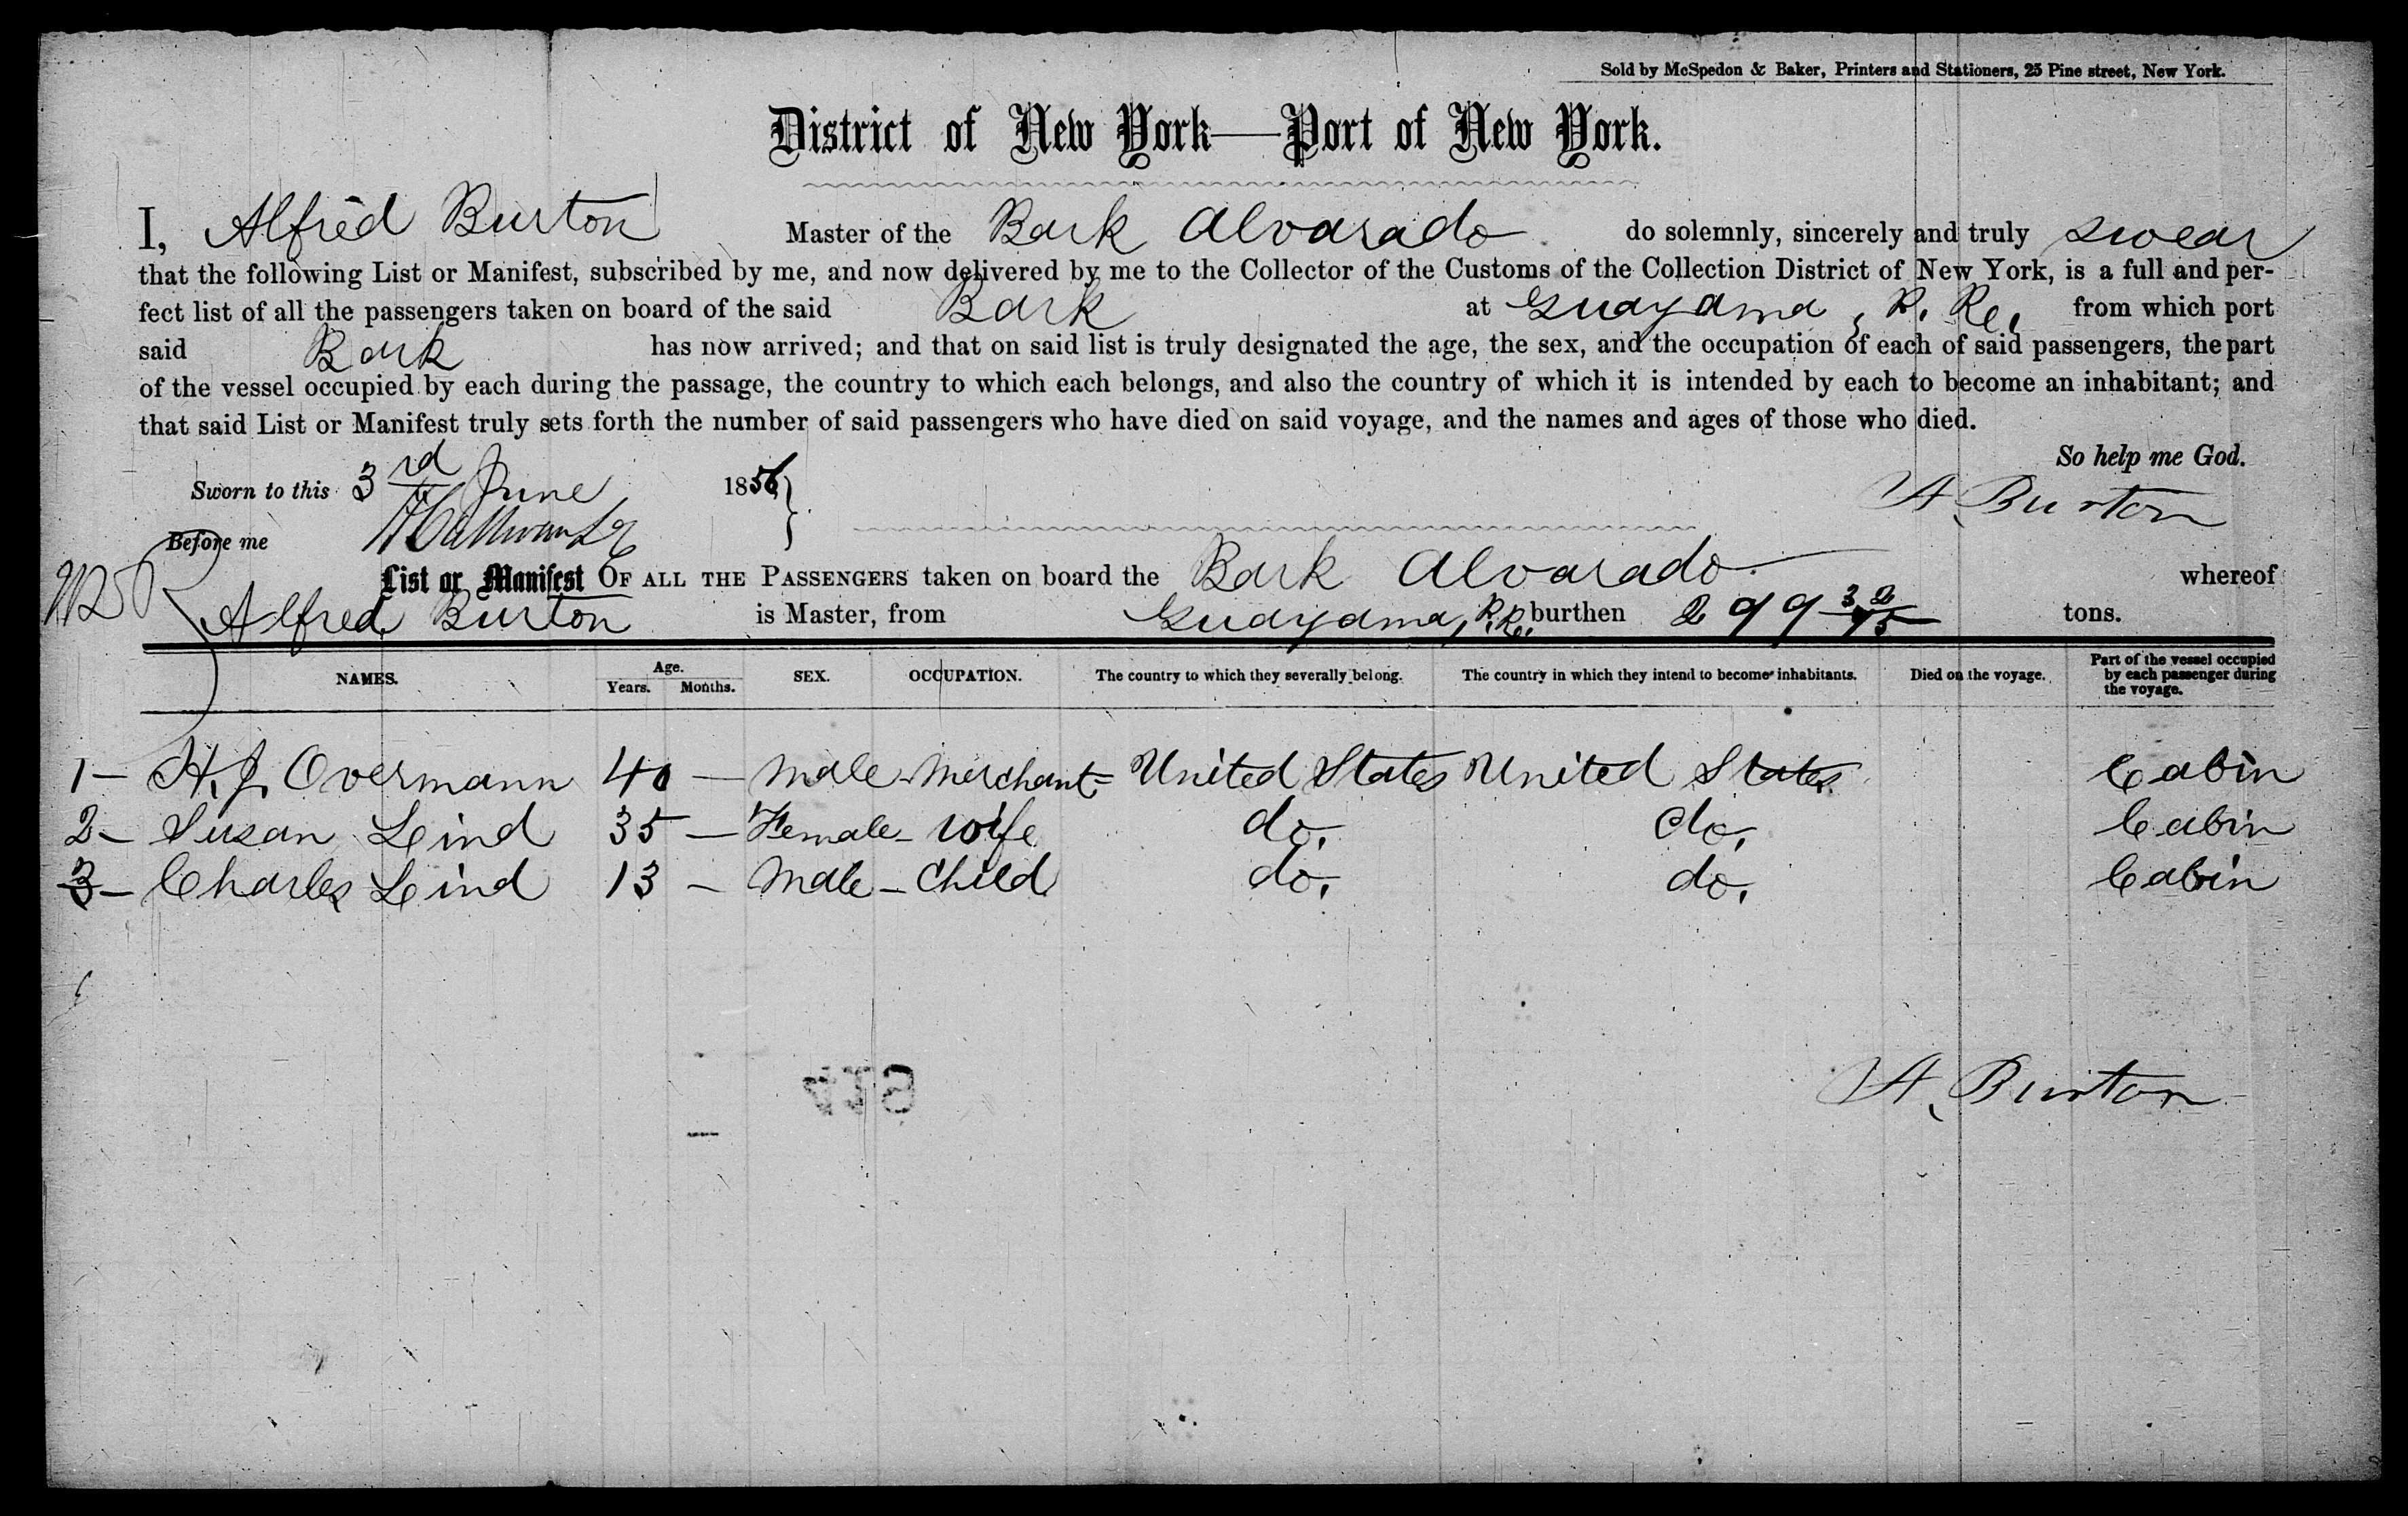 Sold by McSpedon & Baker, Printers and Stationers, 25 Pine street, New York.
District of New York—Port of New York.
I, Alfred Burton Master of the Bark Alvarado do solemnly, sincerely and truly swear
that the following List or Manifest, subscribed by me, and now delivered by me to the Collector of the Customs of the Collection District of New York, is a full and per-
fect list of all the passengers taken on board of the said Bark at Guayama, P. Rc, from which port
said Bark has now arrived; and that on said list is truly designated the age, the sex, and the occupation of each of said passengers, the part
of the vessel occupied by each during the passage, the country to which each belongs, and also the country of which it is intended by each to become an inhabitant; and
that said List or Manifest truly sets forth the number of said passengers who have died on said voyage, and the names and ages of those who died.
So help me God.
Sworn to this 3rd June 1856
A. Burton
Before me
List or Manifest OF ALL THE PASSENGERS taken on board the Bark Alvarado whereof
Alfred Burton is Master, from Guayama, P. Rc, burthen 299 32/95 tons.
NAMES. Age. Years. Months. SEX. OCCUPATION. The country to which they severally belong. The country in which they intend to become inhabitants. Died on the voyage. Part of the vessel occupied by each passenger during the voyage.
1 – H. J. Overmann 40 — Male – Merchant = United States United States Cabin
2 – Susan Leind 35 — Female – Wife do. do. Cabin
3 – Charles Leind 13 – Male – Child do. do. Cabin
A. Burton